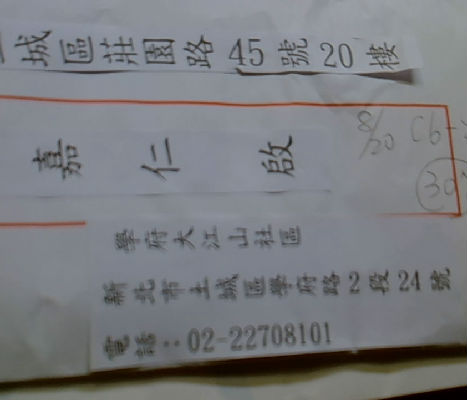 城區莊園路45號20樓
嘉仁啟
8/20 C6-
30
學府大江山社區
新北市土城區學府路2段24號
電話:02-22708101